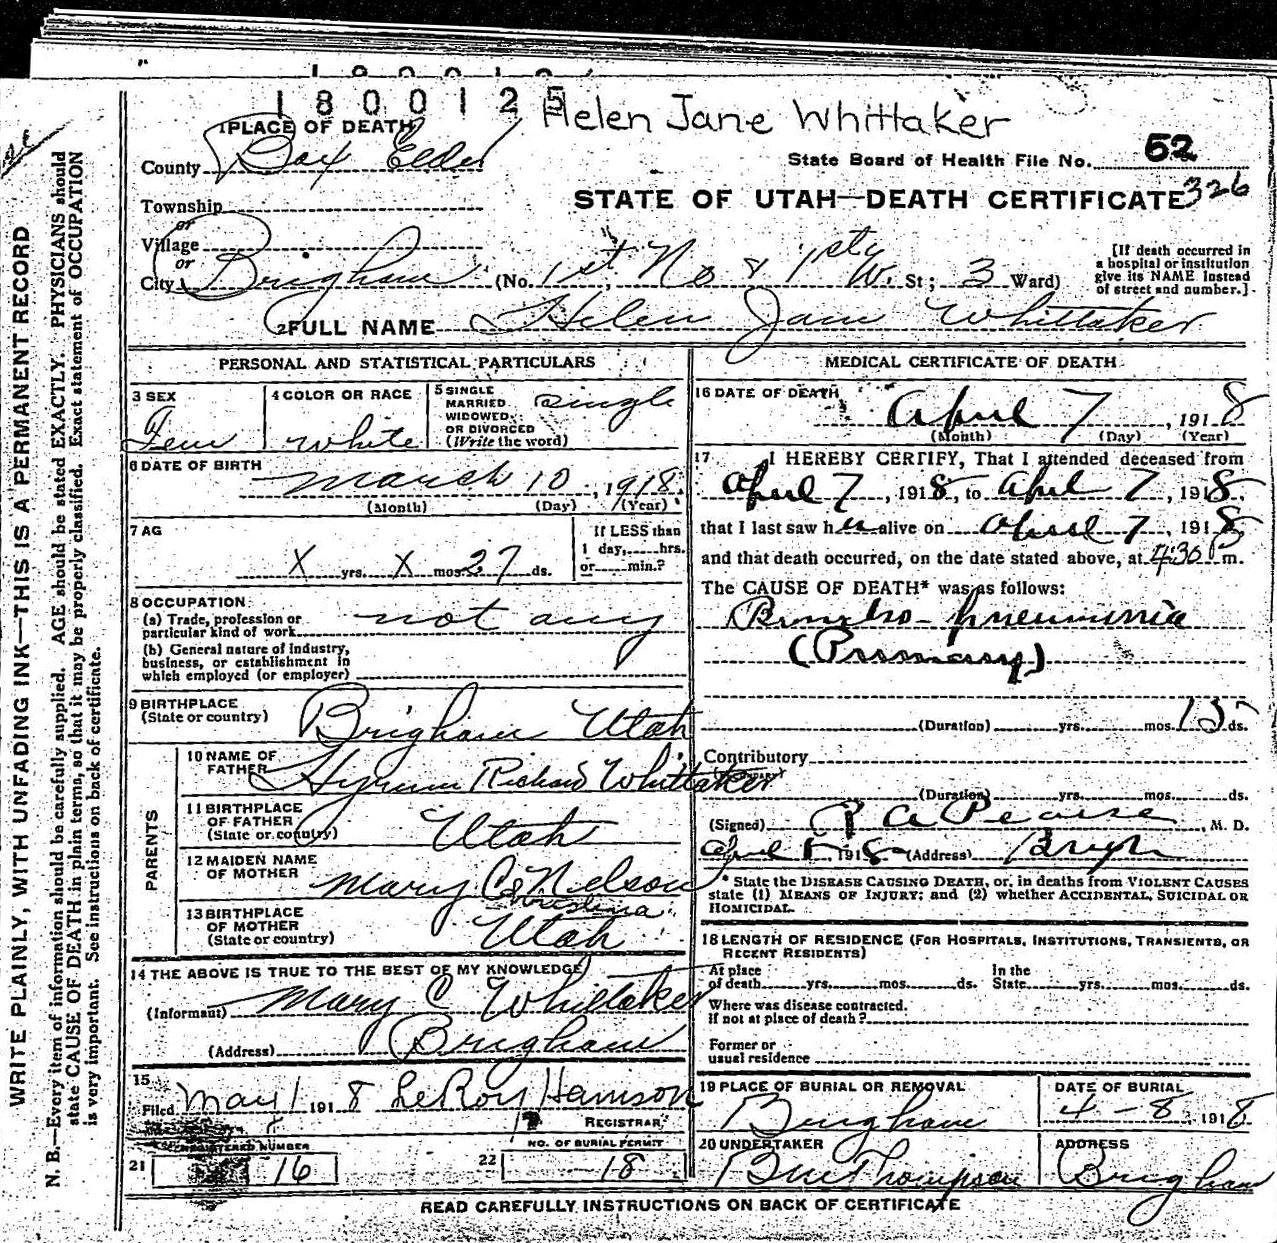 1800125
Helen Jane Whittaker
1 PLACE OF DEATH
County Box Elder
State Board of Health File No. 52
326
STATE OF UTAH—DEATH CERTIFICATE
Township
or
Village
or
City Brigham (No. 1st No & 1st W. St; 3 Ward)
[If death occurred in
a hospital or institution
give its NAME instead
of street and number.]
2 FULL NAME Helen Jane Whittaker
PERSONAL AND STATISTICAL PARTICULARS
3 SEX Fem
4 COLOR OR RACE white
5 SINGLE
MARRIED
WIDOWED
OR DIVORCED
(Write the word)
single
6 DATE OF BIRTH
March 10, 1918
(Month) (Day) (Year)
7 AG
X yrs. X mos. 27 ds.
If LESS than
1 day, hrs.
or min.?
8 OCCUPATION
(a) Trade, profession or
particular kind of work not any
(b) General nature of industry,
business, or establishment in
which employed (or employer)
9 BIRTHPLACE
(State or country) Brigham Utah
PARENTS
10 NAME OF
FATHER Hyrum Richard Whittaker
11 BIRTHPLACE
OF FATHER
(State or country) Utah
12 MAIDEN NAME
OF MOTHER Mary C Nelson
Christina
13 BIRTHPLACE
OF MOTHER
(State or country) Utah
14 THE ABOVE IS TRUE TO THE BEST OF MY KNOWLEDGE
(Informant) Mary C Whittaker
(Address) Brigham
15
Filed May 1 1918 LeRoy Harrison
REGISTRAR
REGISTERED NUMBER
21 16
NO. OF BURIAL PERMIT
22 18
MEDICAL CERTIFICATE OF DEATH
16 DATE OF DEATH
April 7, 1918
(Month) (Day) (Year)
17 I HEREBY CERTIFY, That I attended deceased from
April 7, 1918, to April 7, 1918
that I last saw her alive on April 7, 1918
and that death occurred, on the date stated above, at 4:30 P m.
The CAUSE OF DEATH* was as follows:
Broncho-pneumonia
(Primary)
(Duration) yrs. mos. 15 ds.
Contributory
(Duration) yrs. mos. ds.
(Signed) R A Pearse, M. D.
April 8, 1918 (Address) Brigh
* State the DISEASE CAUSING DEATH, or, in deaths from VIOLENT CAUSES
state (1) MEANS OF INJURY; and (2) whether ACCIDENTAL, SUICIDAL OR
HOMICIDAL.
18 LENGTH OF RESIDENCE (FOR HOSPITALS, INSTITUTIONS, TRANSIENTS, OR
RECENT RESIDENTS)
At place
of death yrs. mos. ds.
In the
State yrs. mos. ds.
Where was disease contracted.
If not at place of death?
Former or
usual residence
19 PLACE OF BURIAL OR REMOVAL
Brigham
DATE OF BURIAL
4-8 1918
20 UNDERTAKER
Thompson
ADDRESS
Brigham
READ CAREFULLY INSTRUCTIONS ON BACK OF CERTIFICATE
WRITE PLAINLY, WITH UNFADING INK—THIS IS A PERMANENT RECORD
N. B.—Every item of information should be carefully supplied. AGE should be stated EXACTLY. PHYSICIANS should
state CAUSE OF DEATH in plain terms, so that it may be properly classified. Exact statement of OCCUPATION
is very important. See instructions on back of certificate.